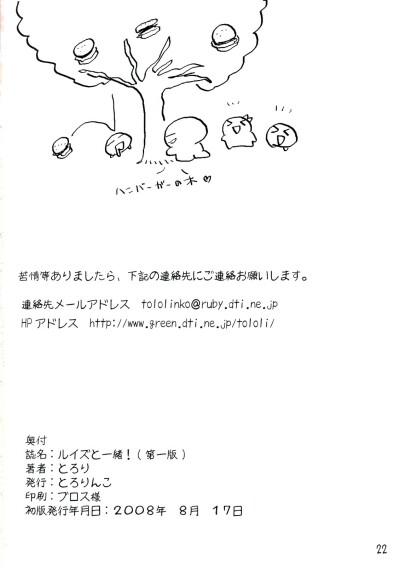 ハンバーガーの木♡
苦情等ありましたら、下記の連絡先にご連絡お願いします。
連絡先メールアドレス　tololinko@ruby.dti.ne.jp
HPアドレス　http://www.green.dti.ne.jp/tololi/
奥付
誌名：ルイズと一緒！（第一版）
著者：とろり
発行：とろりんこ
印刷：プロス様
初版発行年月日：２００８年　８月　１７日
22